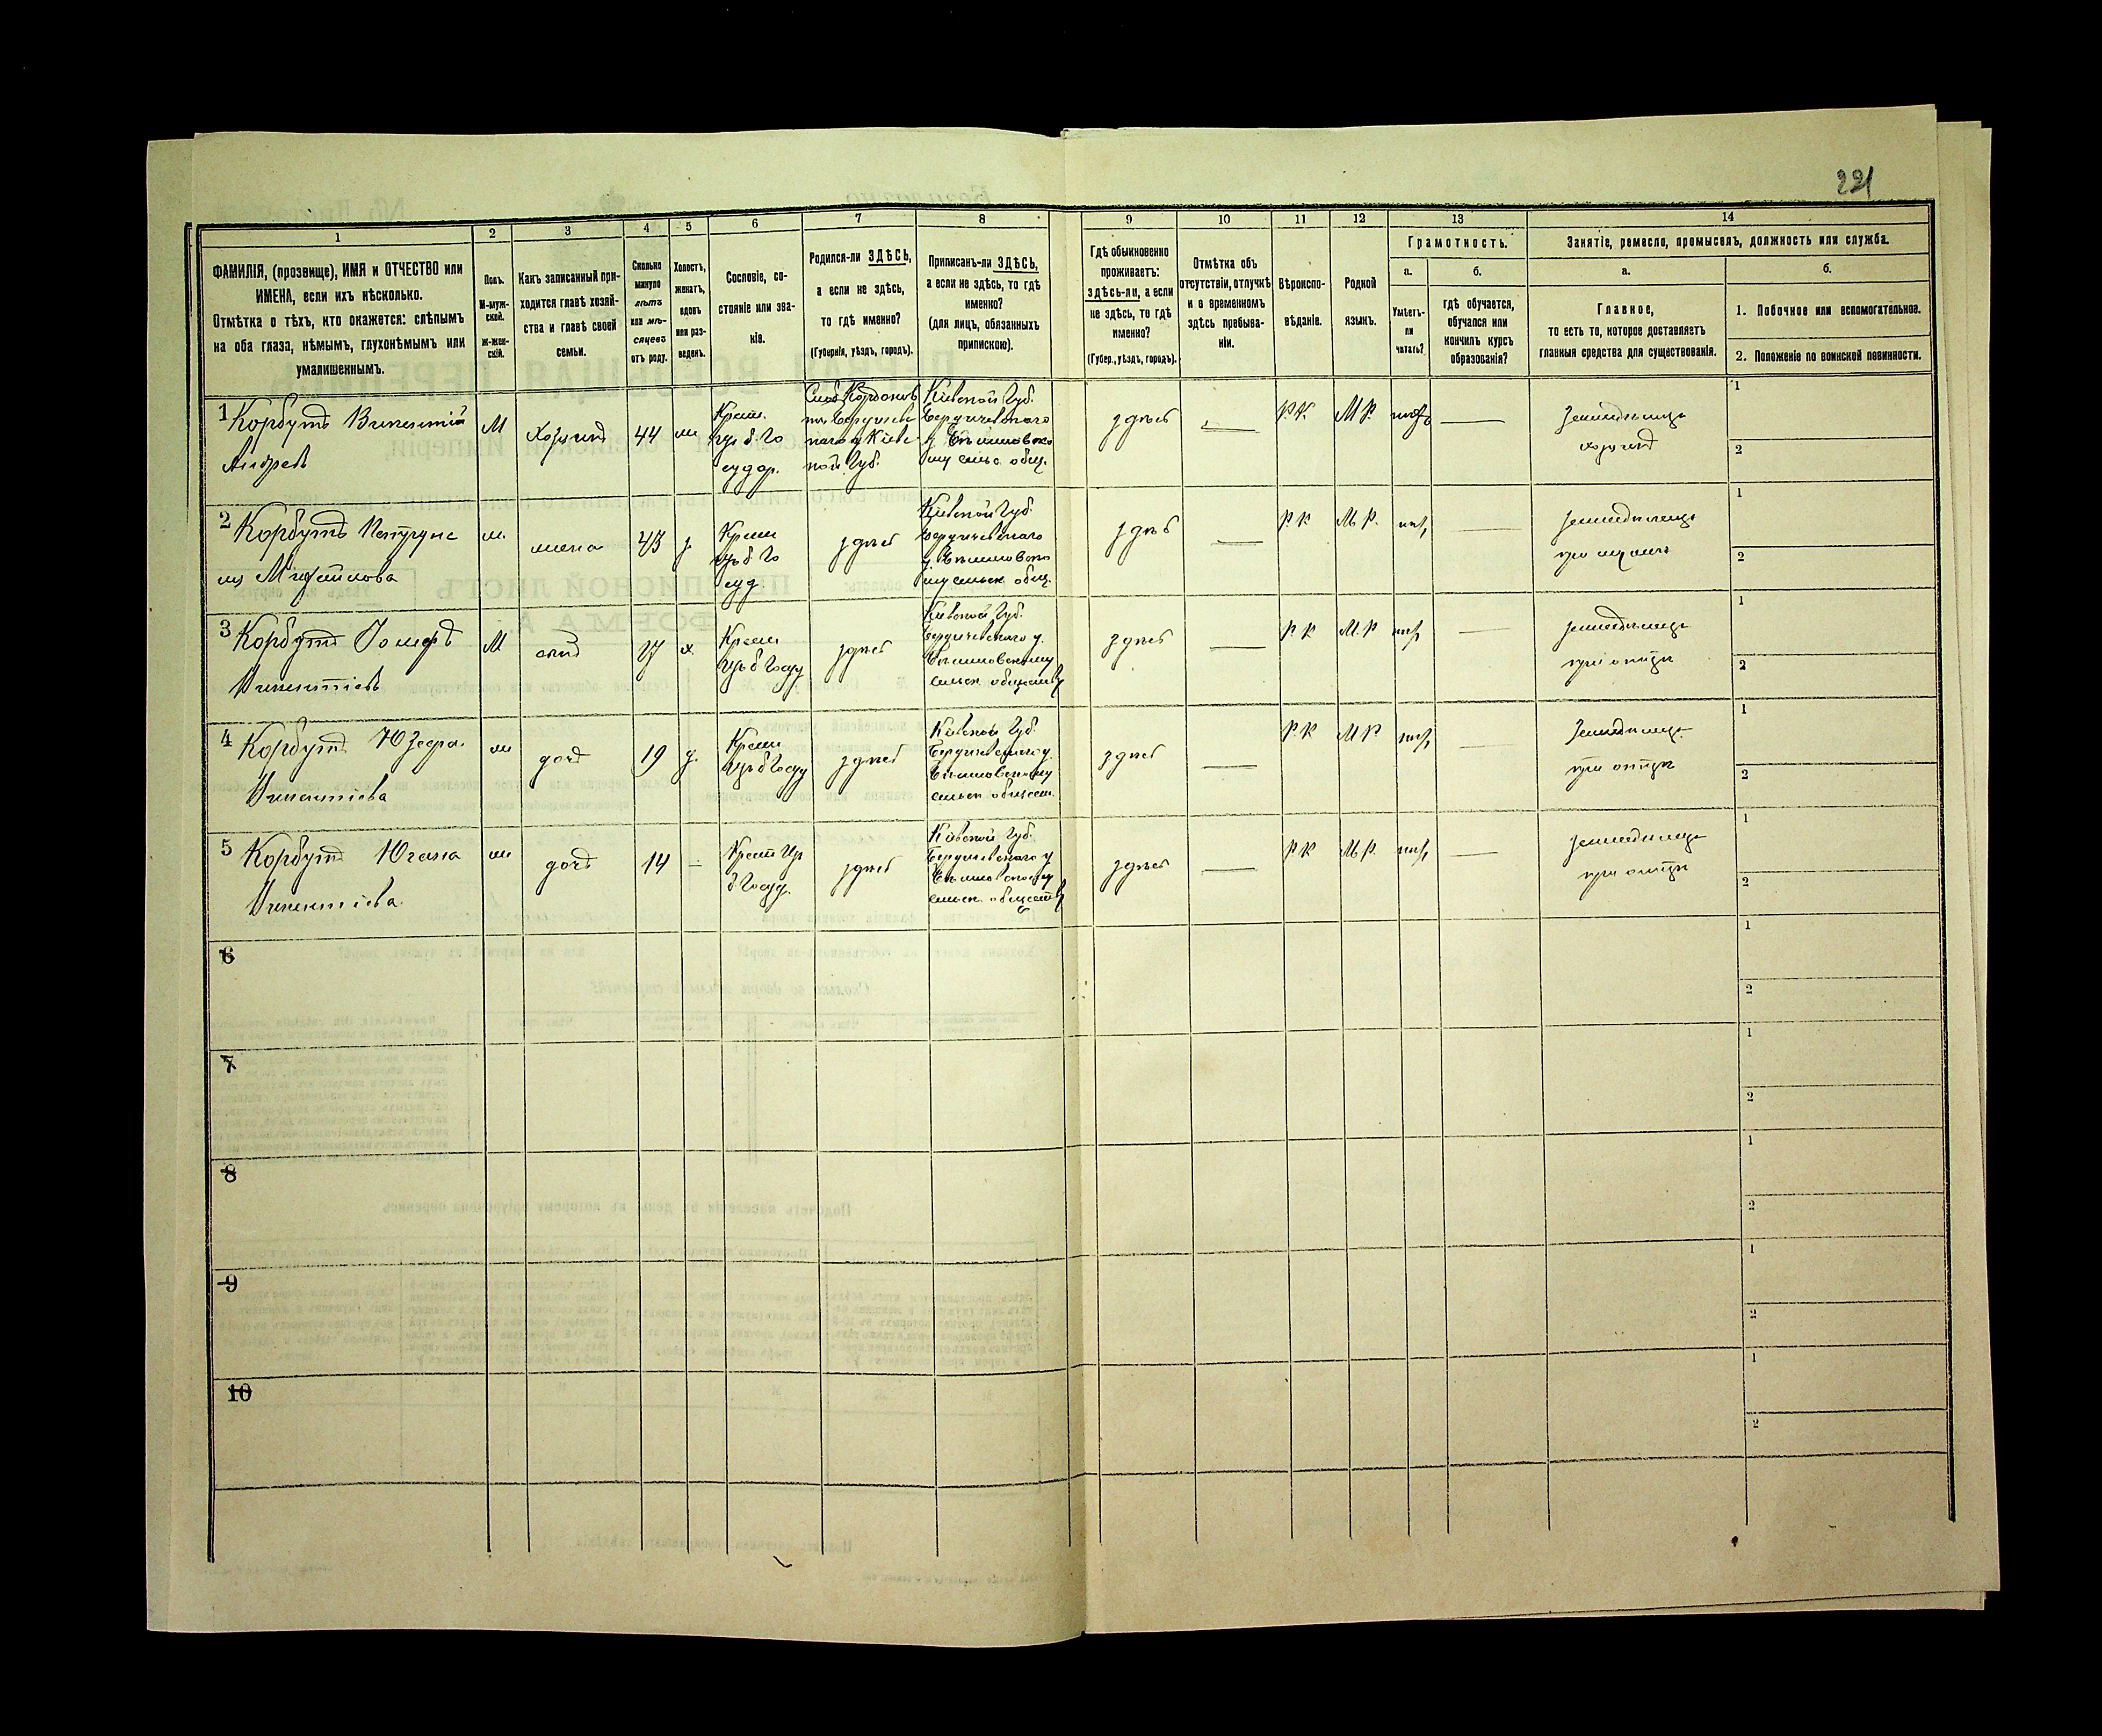 221
1
2
3
4
5
6
7
8
9
10
11
12
13
14
ФАМИЛІЯ, (прозвище), ИМЯ и ОТЧЕСТВО или
ИМЕНА, если ихъ нѣсколько.
Отмѣтка о тѣхъ, кто окажется: слѣпымъ
на оба глаза, нѣмымъ, глухонѣмымъ или
умалишеннымъ.
Полъ.
М-муж-
ской.
Ж-жен-
скій.
Какъ записанный при-
ходится главѣ хозяй-
ства и главѣ своей
семьи.
Сколько
минуло
лѣтъ
или мѣ-
сяцевъ
отъ роду.
Холостъ,
женатъ,
вдовъ
или раз-
веденъ.
Сословіе, со-
стояніе или зва-
ніе.
Родился-ли ЗДѢСЬ,
а если не здѣсь,
то гдѣ именно?
(Губернія, уѣздъ, городъ).
Приписанъ-ли ЗДѢСЬ,
а если не здѣсь, то гдѣ
именно?
(для лицъ, обязанныхъ
припискою).
Гдѣ обыкновенно
проживаетъ:
здѣсь-ли, а если
не здѣсь, то гдѣ
именно?
(Губер., уѣздъ, городъ).
Отмѣтка объ
отсутствіи, отлучкѣ
и о временномъ
здѣсь пребыва-
ніи.
Вѣроиспо-
вѣданіе.
Родной
языкъ.
Грамотность.
а.
Умѣетъ-
ли
читать?
б.
гдѣ обучается,
обучался или
кончилъ курсъ
образованія?
Занятіе, ремесло, промыселъ, должность или служба.
а.
Главное,
то есть то, которое доставляетъ
главныя средства для существованія.
б.
1. Побочное или вспомогательное.
2. Положеніе по воинской повинности.
1 Корбутъ Викентій
Андреевъ
М
Хозяинъ
44
ж
Крест.
изъ б. Го
судар.
Бердичев
наго у Кіев
ной Губ.
Кіевской Губ.
Бердичевскаго
у.
сельс. общ.
здѣсь
Р.К.
М.Р.
нѣтъ
земледѣлецъ
хозяинъ
1
2
2 Корбутъ
Михайлова
ж.
жена
43
з.
Крест
изъ б. Го
суд
здѣсь
Кіевской Губ.
Бердичевскаго
у.
сельск. общ.
здѣсь
Р.К
М.Р.
нѣт
земледѣлецъ
при мужѣ
1
2
3 Корбутъ Іосифъ
Викентіевъ
М
сынъ
х.
Крест
изъ б Госуд
здѣсь
Кіевской Губ.
Бердичевскаго у.
сельск. обществу
здѣсь
Р.К
М.Р
нѣт
земледѣлецъ
при отцѣ
1
2
4 Корбутъ Юзефа
Викентіева
ж
дочь
19
д.
Крест
изъ б Госуд
здѣсь
Кіевской Губ.
Бердичевскаго у.
сельск общест.
здѣсь
Р.К
М Р
нѣт
земледѣлецъ
при отцѣ
1
2
5 Корбутъ
Викентіева
ж
дочь
14
Крест Из
б Госуд.
здѣсь
Кіевской Губ.
Бердичевскаго у
сельск. обществу
здѣсь
Р.К
М.Р.
нѣт
земледѣлецъ
при отцѣ
1
2
6
1
2
7
1
2
8
1
2
9
1
2
10
1
2